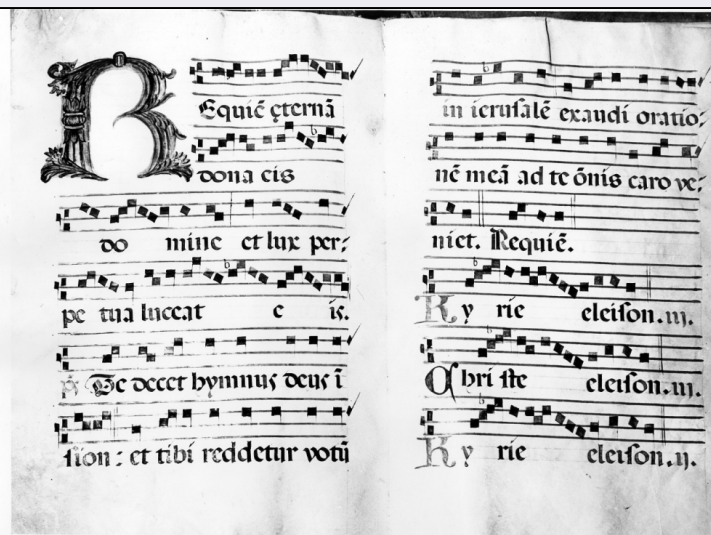 REquiē ęternā
dona eis
do mine et lux per:
pe tua luceat e is.
Te decet hymnus deus ī
sion: et tibi reddetur votū
in ierusalē exaudi oratio:
nē meā ad te ōnis caro ve:
niet. Requiē.
Ky rie eleison.iij.
Chri ste eleison.iij.
Ky rie eleison.ij.